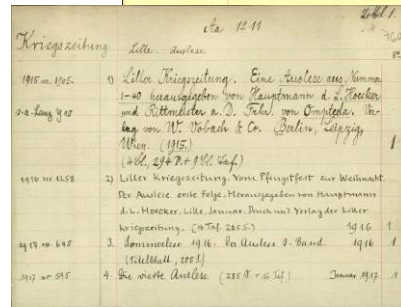 Zettel 1.
Aa 1211
Kriegszeitung
Lille. Auslese
8°
1915 nr. 1905.
1) Liller Kriegszeitung. Eine Auslese aus Nummer
1-40 herausgegeben von Hauptmann d. L. Hoecker
und Rittmeister a. D. Frhr. von Ompteda. Ver-
lag von W. Vobach & Co. Berlin, Leipzig,
Wien. (1915.)
(4 Bl., 294 S. + 9 Bl. Taf.)
1916 nr 1258
2) Liller Kriegszeitung. Vom Pfingstfest zur Weihnacht.
Der Auslese erste Folge. Herausgegeben von Hauptmann
d. L. Hoecker. Lille, Januar. Druck und Verlag der Liller
Kriegszeitung. (16 Taf. 285 S.) 1916 1
nr 645
3. Sommerlese 1916. der Auslese 3. Band. 1916 1
(Titelblatt, 205 S.)
1917 nr 545
4. Die vierte Auslese (285 S. + 16 Taf.) Januar 1917 1